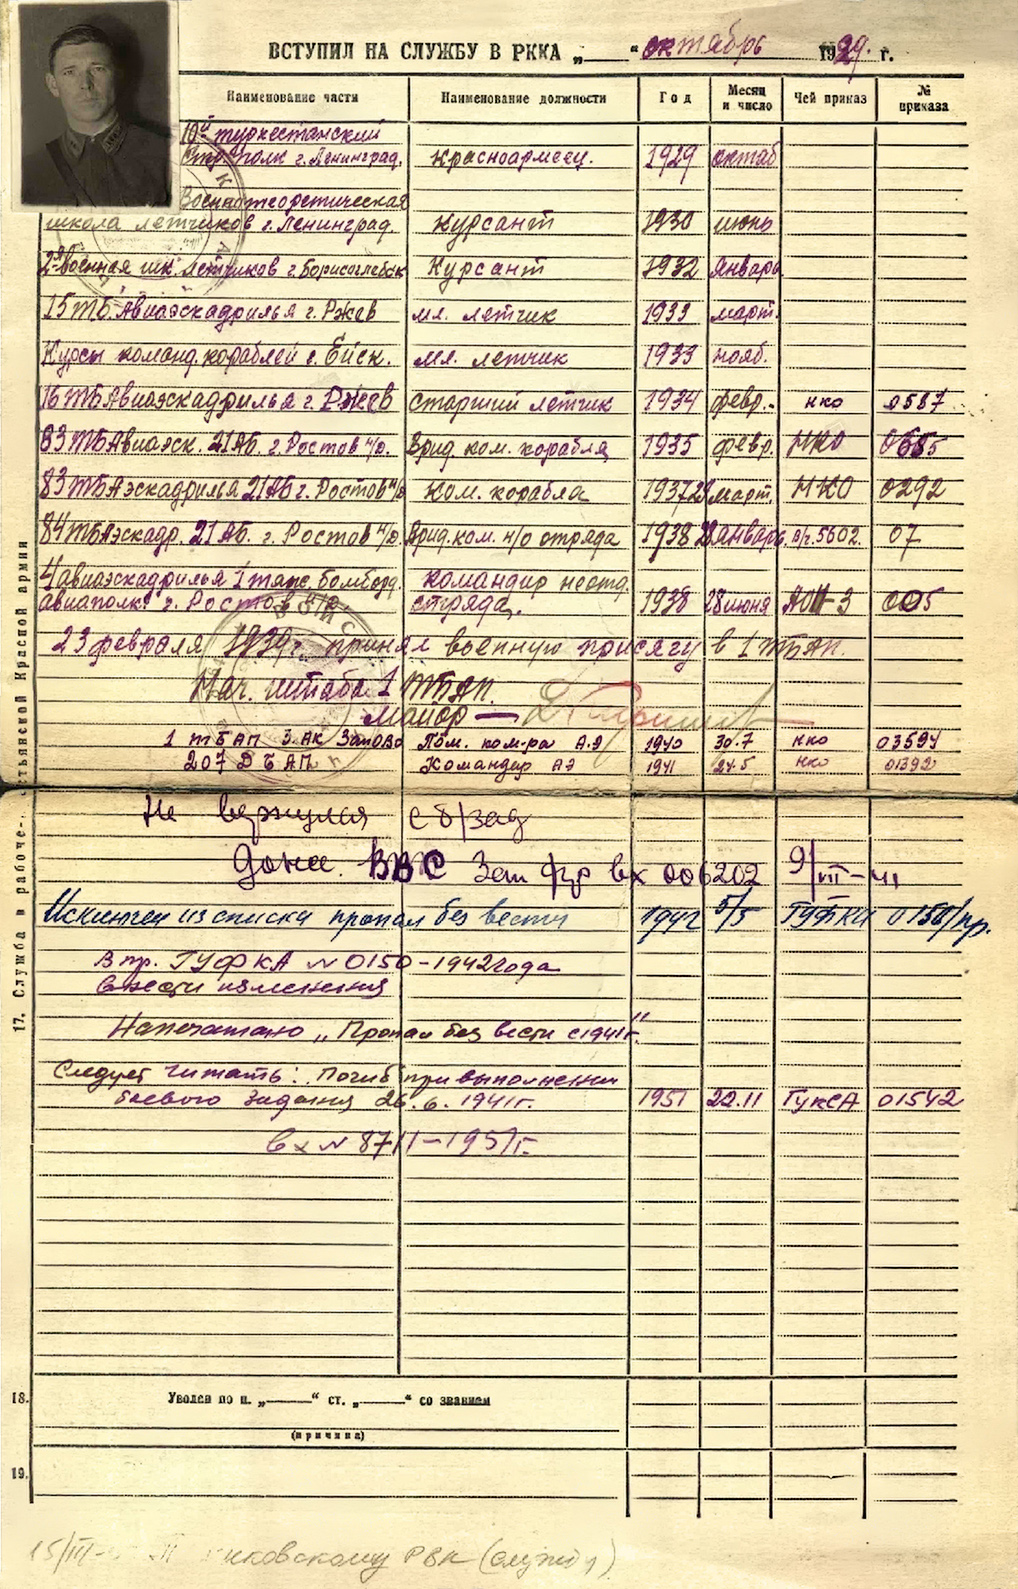 ВСТУПИЛ НА СЛУЖБУ В РККА „ “ октябрь 1929. г.
Наименование части Наименование должности Год Месяц и число Чей приказ № приказа
10й туркестанский
стр. полк г. Ленинград. Красноармеец. 1929 октяб
Военнотеоретическая
школа летчиков г. Ленинград. Курсант 1930 июнь
2я военная шк. летчиков г. Борисоглебск Курсант 1932 Январь
15 ТБ. Авиаэскадрилья г. Ржев мл. летчик 1933 март.
Курсы команд. кораблей г. Ейск. мл. летчик 1933 нояб.
16 ТБ Авиаэскадрилья г. Ржев старший летчик 1934 февр. нко 0587
83 ТБ Авиаэск. 21 АБ. г. Ростов н/Д. Врид. ком. корабля 1935 февр. НКО
83 ТБ Аэскадрилья 21 АБ г. Ростов н/Д Ком. корабля 1937 28 март. НКО 0292
84 ТБ Аэскадр. 21 АБ. г. Ростов н/Д. Врид. ком. н/о отряда 1938 28 январь. 5602. 07
4 авиаэскадрилья 1 тяж. бомбард. Командир неотд.
авиаполк. г. Ростов н/Д. отряда. 1938 28 июня АОН-3 005
23 февраля 1939 г. принял военную присягу в 1 ТБАП.
Нач. штаба 1 ТБАП.
майор —
1 ТБАП 3 АК Пом. ком-ра АЭ 1940 30.7 нко 03594
207 ДБАП Командир АЭ 1941 24.5 нко 01392
Не вернулся с б/зад
Донес. ВВС Зап фр вх 006202 9/VII-41
Исключен из списка пропал без вести 1942 5/5 ГУФКА 0150/пр.
В пр. ГУФКА № 0150-1942 года
внести изменения
Напечатано „Пропал без вести с 1941 г.“
Следует читать: Погиб при выполнении
боевого задания 26.6.1941 г. 1951 22.11 ГУКСА 01542
вх № 8711-1951 г.
17. Служба в рабоче-крестьянской Красной армии
18. Уволен по п. „ “ ст. „ “ со званием
(причина)
19.
15/III- РВК (службу)